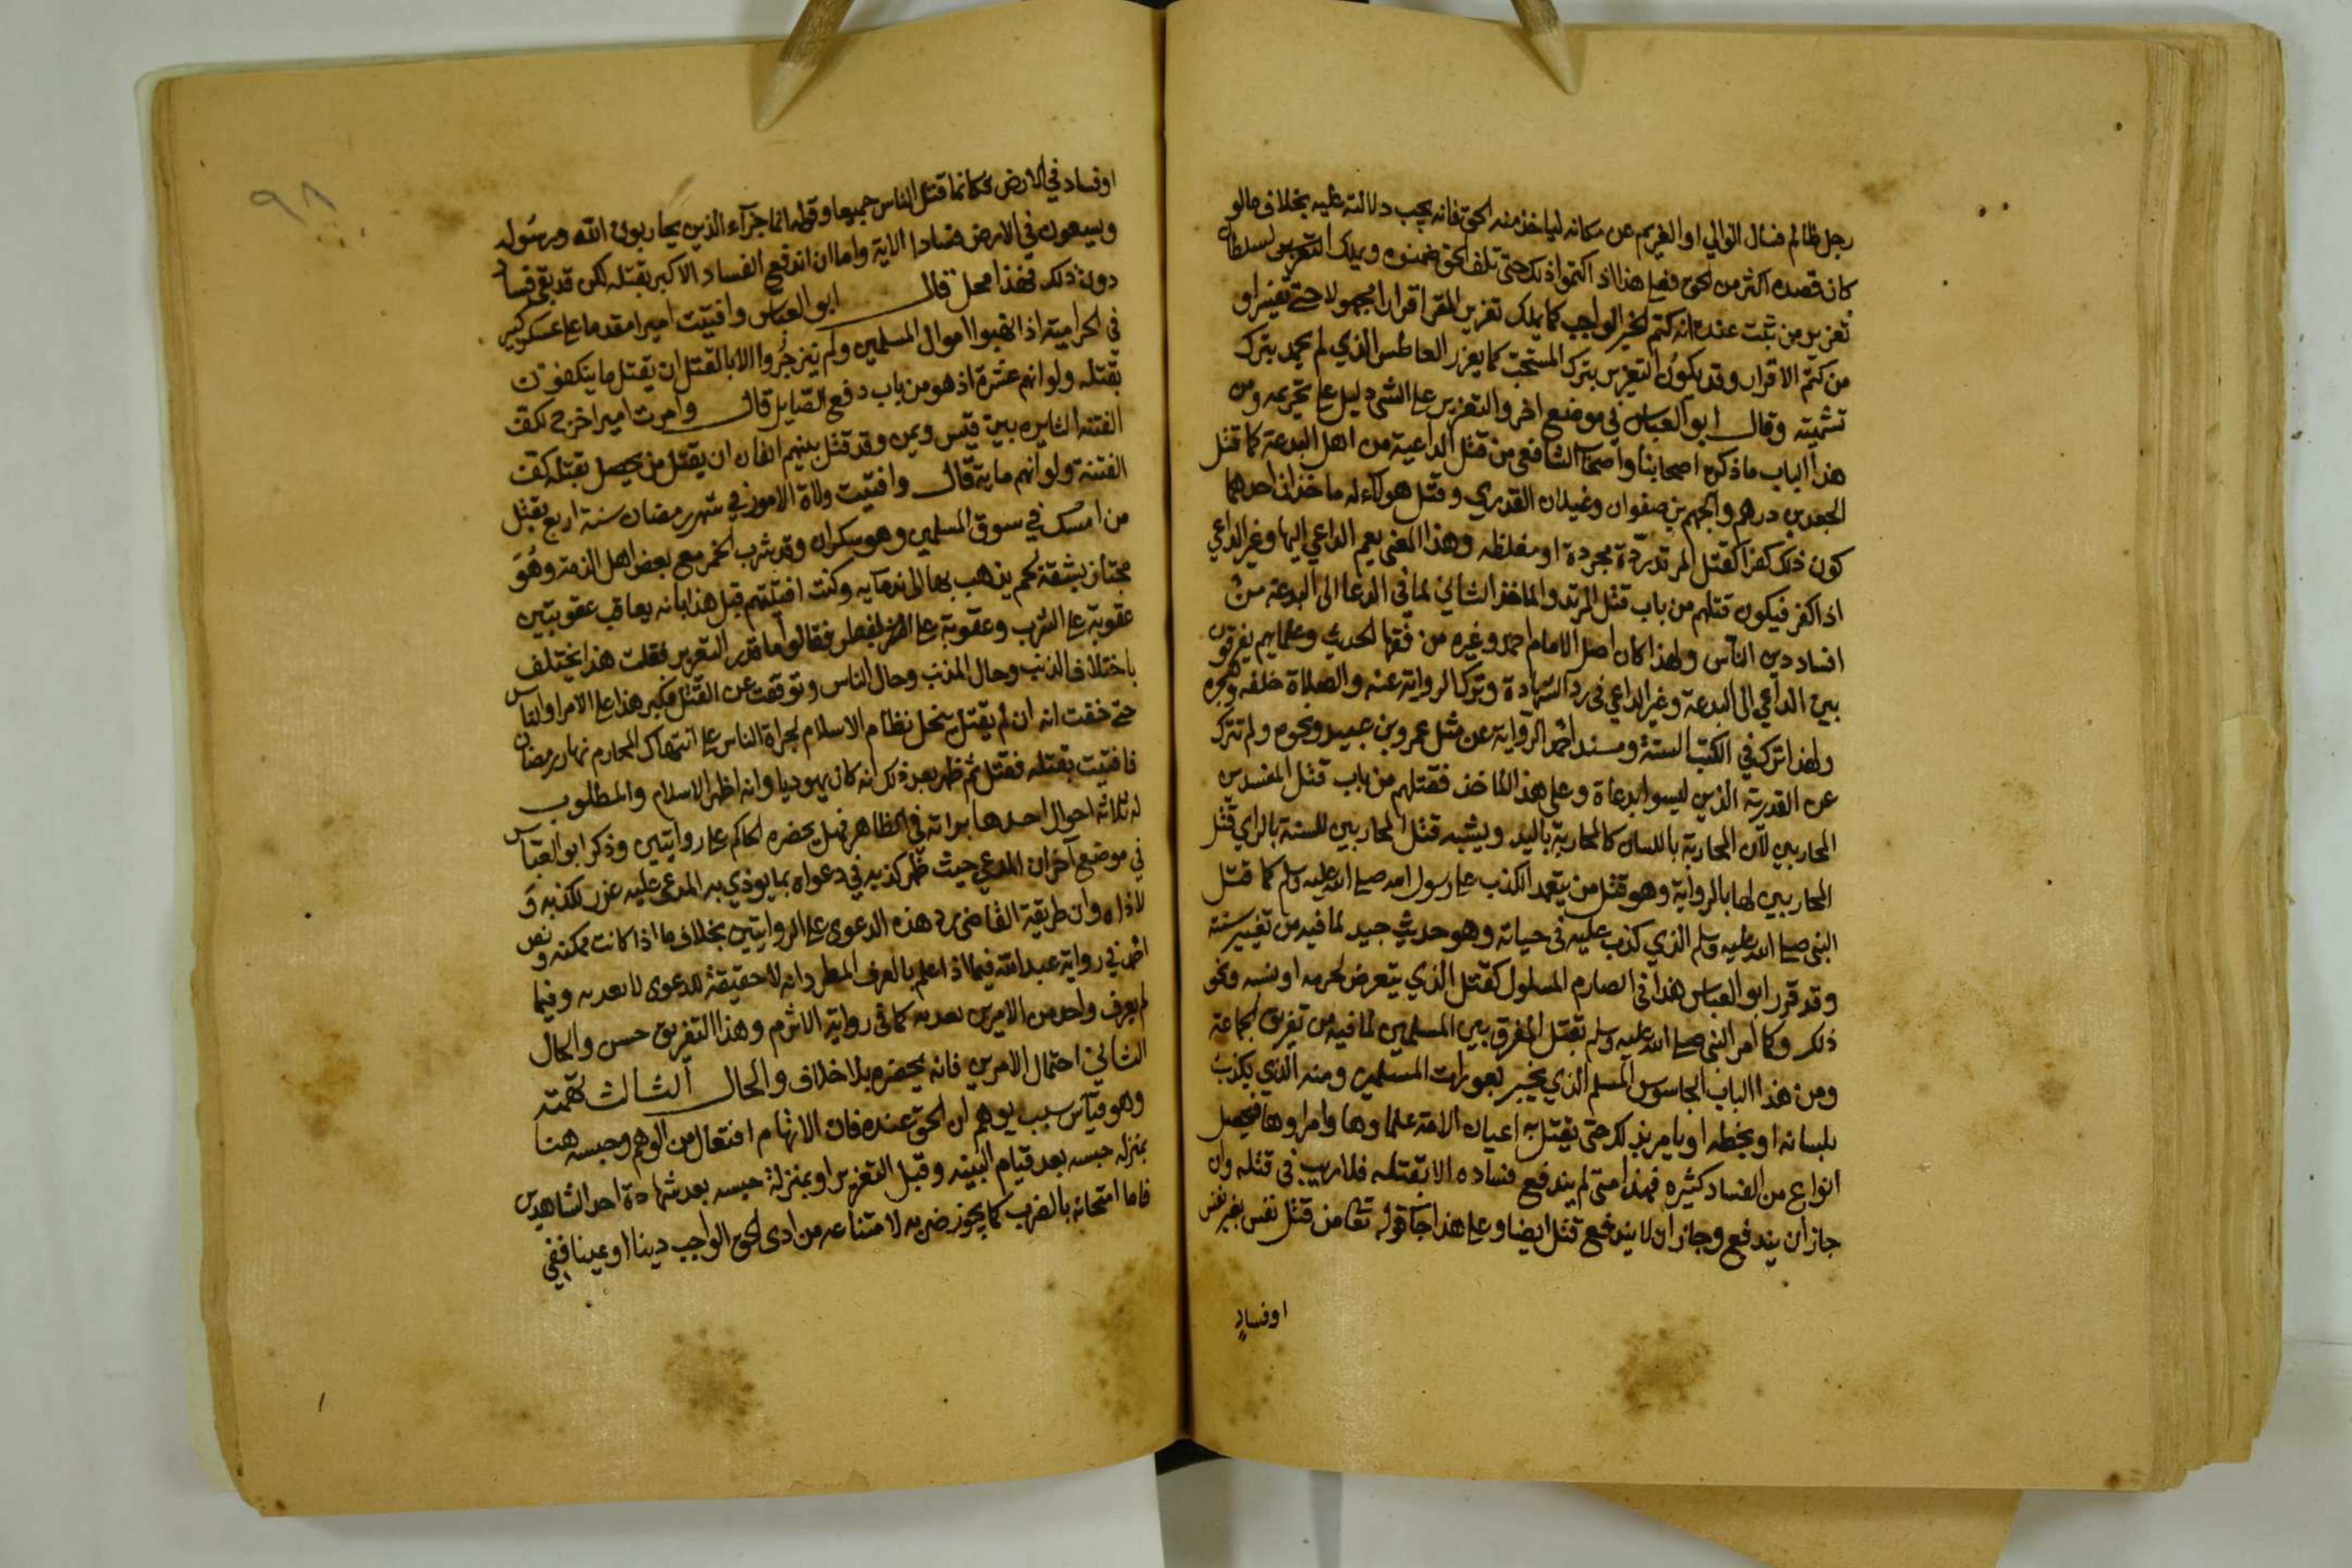 رجل ظالم فسال الوالي او الغريم عن مكانه لياخذ منه الحق فانه يجب دلالته عليه بخلاف مالو
كان قصده اكثر من الحق فعلى هذا اذا كتموا ذلك حتى تلف الحق ضمنوه ويملك السلطان
تعزير من ثبت عنده انه كتم الخبر الواجب كما يملك تعزير المقر اقرارا مجهولا حتى يفسر او
من كتم الاقرار وقد يكون التعزير بترك المستحب كما يعزر العاطس الذي لم يحمد بترك
تشميته وقال ابو العباس في موضع اخر والتعزير على الشي دليل على تحريمه ومن
هذا الباب ما ذكره اصحابنا واصحاب الشافعي من قتل الداعية من اهل البدعة كما قتل
الجعد بن درهم والجهم بن صفوان وغيلان القدري وقتل هولاء له ماخذان احدهما
كون ذلك كفرا كقتل المرتد ردة مجردة او مغلظه وهذا المعنى يعم الداعي اليها وغير الداعي
اذا كفر فيكون قتلهم من باب قتل المرتد والماخذ الثاني لما في الدعا الى البدعة من
افساد دين الناس ولهذا كان اصل الامام احمد وغيره من فقها الحديث وعلمايهم يفرقون
بين الداعي الى البدعة وغير الداعي في رد الشهادة وترك الرواية عنه والصلاة خلفه وهجره
ولهذا ترك في الكتب الستة ومسند احمد الرواية عن مثل عمرو بن عبيد ونحوه ولم تترك
عن القدرية الذين ليسوا بدعاة وعلى هذا الماخذ فقتلهم من باب قتل المفسدين
المحاربين لان المحاربة باللسان كالمحاربة باليد ويشبه قتل المحاربين للسنة بالراي قتل
المحاربين لها بالرواية وهو قتل من يتعمد الكذب على رسول الله صلى الله عليه وسلم كما قتل
النبي صلى الله عليه وسلم الذي كذب عليه في حياته وهو حديث جيد لما فيه من تغيير سنته
وقد قرر ابو العباس هذا في الصارم المسلول كقتل الذي يتعرض لحرمه او نسبه ونحو
ذلك وكما امر النبي صلى الله عليه وسلم بقتل المفرق بين المسلمين لما فيه من تفريق الجماعة
ومن هذا الباب الجاسوس المسلم الذي يخبر بعورات المسلمين ومنه الذي يكذب
بلسانه او بخطه او يامر بذلك حتى يقتل به اعيان الامة علماوها وامراوها فيحصل
انواع من الفساد كثيره فهذا متى لم يندفع فساده الا بقتله فلا ريب في قتله وان
جاز ان يندفع وجاز ان لا يندفع قتل ايضا وعلى هذا جا قوله تعالى من قتل نفس بغير نفس
او فساد
٩٨
او فساد في الارض فكانما قتل الناس جميعا وقوله انما جزآء الذين يحاربون الله ورسوله
ويسعون في الارض فسادا الاية واما ان اندفع الفساد الاكبر بقتله لكن قد بقي فساد
دون ذلك فهذا محل قال ابو العباس وافتيت اميرا مقدما على عسكر كبير
في الحرامية اذا نهبوا اموال المسلمين ولم ينزجروا الا بالقتل ان يقتل ما يتكفون
بقتله ولو انهم عشرة اذ هو من باب دفع الصايل قال وامرت اميرا خرج لكف
الفتنه الثايره بين قيس ويمن وقد قتل بينهم الفان ان يقتل من يحصل بقتله كف
الفتنة ولو انهم ماية قال وافتيت ولاة الامور في شهر رمضان سنة اربع بقتل
من امسك في سوق المسلمين وهو سكران وقد شرب الخمر مع بعض اهل الذمة وهو
مجتاز بشقة لحم يذهب بها الى ندمآيه وكنت افتيتهم قبل هذا بانه يعاقب عقوبتين
عقوبة على الشرب وعقوبة على الفطر فقالوا ما قدر التعزير فقلت هذا يختلف
باختلاف الذنب وحال المذنب وحال الناس وتوقفت عن القتل فكبر هذا على الامرا والناس
حتى خفت انه ان لم يقتل ينحل نظام الاسلام لجراة الناس على انتهاك المحارم نهار رمضان
فافتيت بقتله فقتل ثم ظهر بعد ذلك انه كان يهوديا وانه اظهر الاسلام والمطلوب
له ثلاثة احوال احدها براته في الظاهر فهل يحضره الحاكم على روايتين وذكر ابو العباس
في موضع آخر ان المدعي حيث ظهر كذبه في دعواه بما يوذي به المدعى عليه عزر لكذبه و
لاذاه وان طريقة القاضي رد هذه الدعوى على الروايتين بخلاف ما اذا كانت ممكنه ونص
احمد في رواية عبد الله فيما اذا علم بالعرف المطرد انه لا حقيقة للدعوى لا يعديه وفيما
لم يعرف واحد من الامرين يعديه كما في رواية الاثرم وهذا التفريق حسن والحال
الثاني احتمال الامرين فانه يحضره بلا خلاف والحال الثالث تهمته
وهو قياس سبب يوهم ان الحق عنده فان الاتهام افتعال من الوهم وحبسه هنا
بمنزلة حبسه بعد قيام البينه وقبل التعزير او بمنزلة حبسه بعد شهادة احد الشاهدين
فاما امتحانه بالضرب كما يجوز ضربه لامتناعه من ادى الحق الواجب دينا او عينا ففي